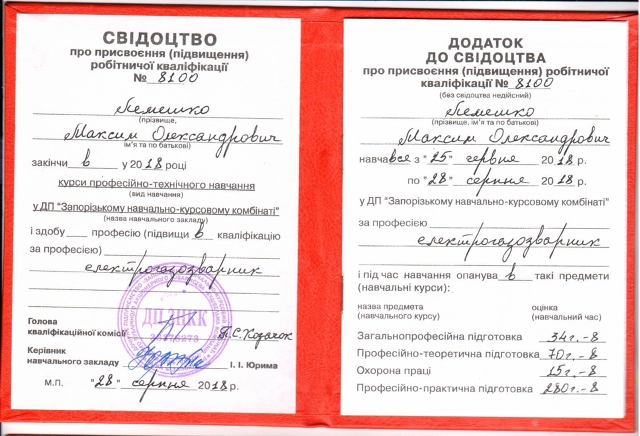 СВІДОЦТВО
про присвоєння (підвищення)
робітничої кваліфікації
№ 8100
Лемешко
(прізвище,
Максим Олександрович
ім'я та по батькові)
закінчи в у 2018 році
курси професійно-технічного навчання
(вид навчання)
у ДП "Запорізькому навчально-курсовому комбінаті"
(назва навчального закладу)
і здобу професію (підвищи в кваліфікацію
за професією)
електрогазозварник
Голова
кваліфікаційної комісії
Керівник
навчального закладу І. І. Юрима
М.П. "28" серпня 2018 р.
ДОДАТОК
ДО СВІДОЦТВА
про присвоєння (підвищення) робітничої
кваліфікації № 8100
(без свідоцтва недійсний)
Лемешко
(прізвище, ім'я та по батькові)
Максим Олександрович
навчався з "25" червня 2018 р.
по "28" серпня 2018 р.
у ДП "Запорізькому навчально-курсовому комбінаті"
за професією
електрогазозварник
і під час навчання опанува в такі предмети
(навчальні курси):
назва предмета оцінка
(навчального курсу) (навчальний час)
Загальнопрофесійна підготовка 34г.-8
Професійно-теоретична підготовка 70г.-8
Охорона праці 15г.-8
Професійно-практична підготовка 280г.-8